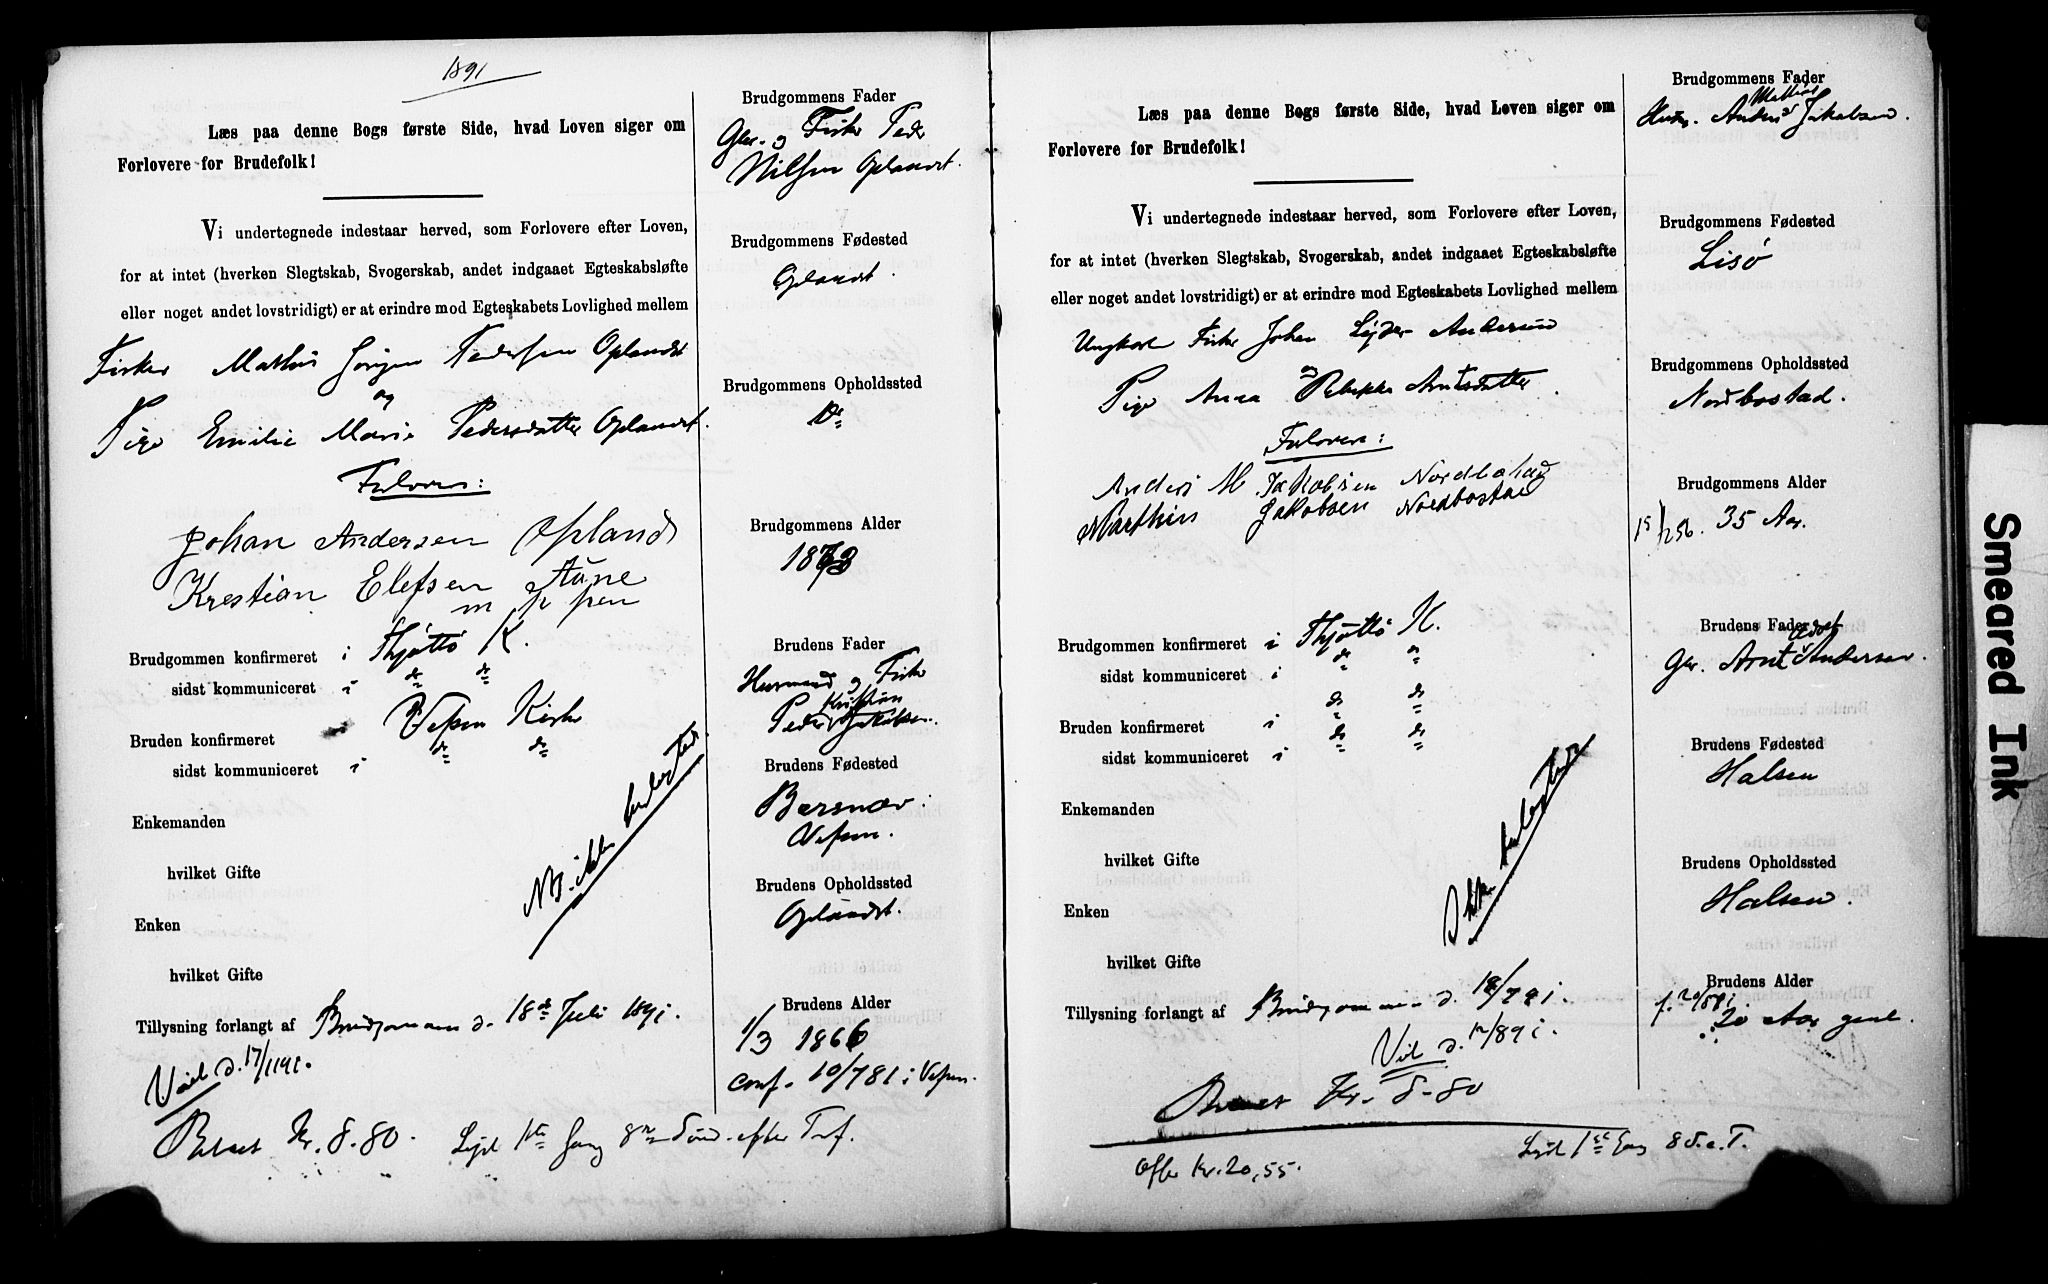 1891
Læs paa denne Bogs første Side, hvad Loven siger om
Forlovere for Brudefolk!
Vi undertegnede indestaar herved, som Forlovere efter Loven,
for at intet (hverken Slegtskab, Svogerskab, andet indgaaet Egteskabsløfte
eller noget andet lovstridigt) er at erindre mod Egteskabets Lovlighed mellem
Fisker Mathias Jørgen Pedersen Oplandst
og
Pige Emilie Marie Pedersdatter Oplandst.
Forlovere:
Johan Andersen Opland
Krestian Elefsen Aune
m p pen
Brudgommen konfirmeret i Thjøttø K.
sidst kommuniceret i do do
Bruden konfirmeret Vefsen Kirke
sidst kommuniceret i do do
Enkemanden
hvilket Gifte
Enken
hvilket Gifte
NB. ikke
Tillysning forlangt af Brudgommen d. 18de Juli 1891.
Viel d. 17/1191.
Betalt Kr. 8.80. Lyst 1ste Gang 8de Sønd. efter Tref.
Brudgommens Fader
Gbr. og Fisker Peder
Nilsen Oplandst.
Brudgommens Fødested
Oplandst.
Brudgommens Opholdssted
Do
Brudgommens Alder
Brudens Fader
Husmand og Fisker
Peder Kristian Jakobsen.
Brudens Fødested
Vefsen.
Brudens Opholdssted
Oplandst.
Brudens Alder
1/3 1866
conf. 10/781 i Vefsen.
Læs paa denne Bogs første Side, hvad Loven siger om
Forlovere for Brudefolk!
Vi undertegnede indestaar herved, som Forlovere efter Loven,
for at intet (hverken Slegtskab, Svogerskab, andet indgaaet Egteskabsløfte
eller noget andet lovstridigt) er at erindre mod Egteskabets Lovlighed mellem
Ungkarl Fisker Johan Andersen
og
Pige Anna Rebekka Arntsdatter.
Forlovere:
Anders M Jakobsen Nordbostad
Marthin Jakobsen Nordbostad
Brudgommen konfirmeret i Thjøttø K.
sidst kommuniceret i do do
Bruden konfirmeret i do do
sidst kommuniceret i do do
Enkemanden
hvilket Gifte
Enken
hvilket Gifte
Ikke
Tillysning forlangt af Brudgommen d. 18/791.
Viel d. /891.
Betalt Kr. 8-80
Offer Kr. 20,55.
Lyst 1ste Gang 8 S. e. T.
Brudgommens Fader
Husm. Anders Mathias Jakobsen.
Brudgommens Fødested
Lisø
Brudgommens Opholdssted
Nordbostad.
Brudgommens Alder
15/1256. 35 Aar.
Brudens Fader
Gbr. Arnt Andersen.
Brudens Fødested
Halsen
Brudens Opholdssted
Halsen.
Brudens Alder
20 Aar gml.
Smeared Ink